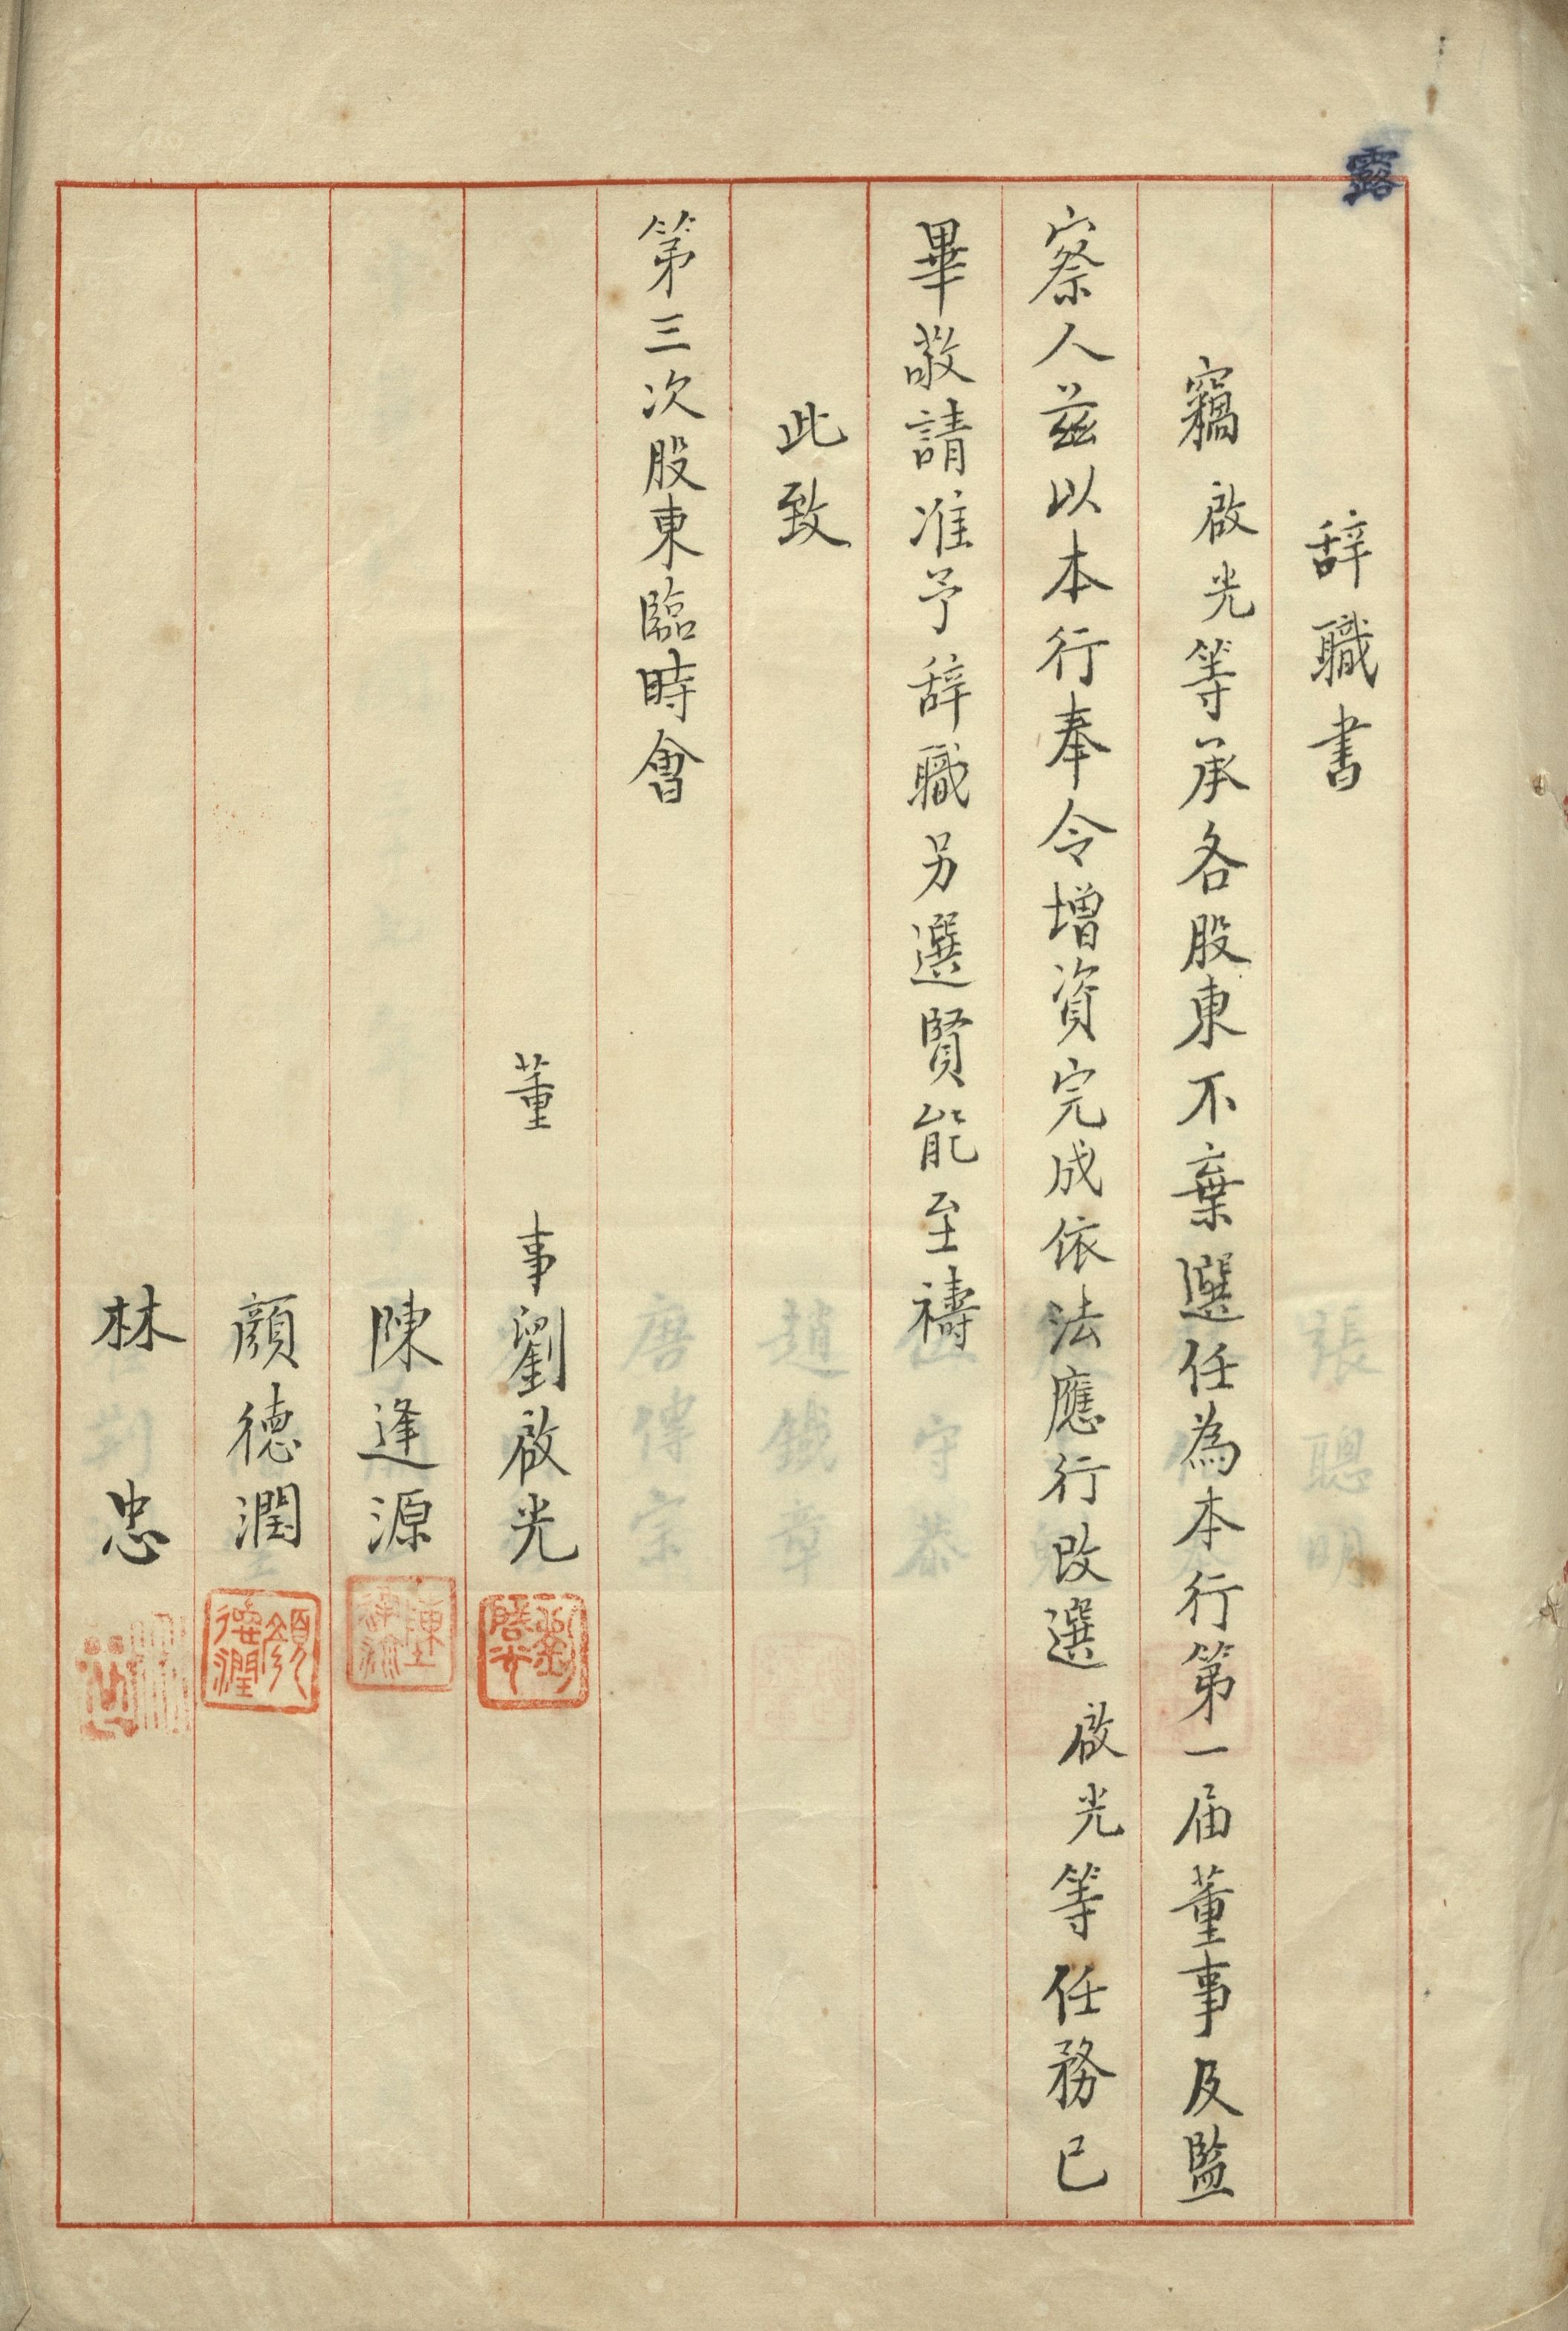 露
辞職書
竊啟光等承各股東不棄選任為本行第一届董事及監
察人茲以本行奉令增資完成依法應行改選啟光等任務已
畢敬請准予辞職另選賢能至禱
此致
第三次股東臨時會
董事劉啟光
陳逢源
顏德潤
林忠